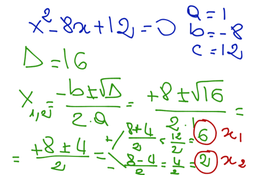 x² - 8x + 12 = 0
a = 1
b = -8
c = 12
D = 16
x₁,₂ = (-b ± √D) / (2·a) = (+8 ± √16) / 2 =
= (+8 ± 4) / 2 =
+ (8+4)/2 = 12/2 = 6 x₁
- (8-4)/2 = 4/2 = 2 x₂